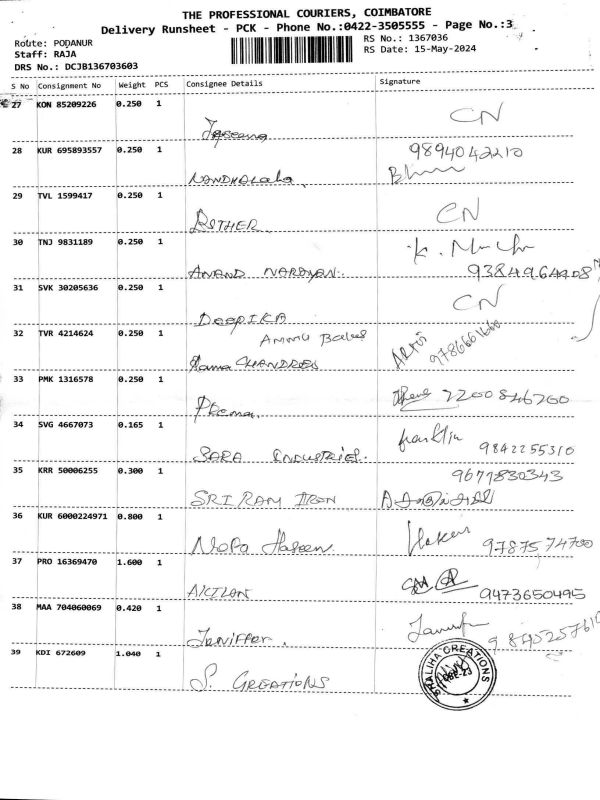 THE PROFESSIONAL COURIERS, COIMBATORE
Delivery Runsheet - PCK - Phone No.:0422-3505555 - Page No.:3
Route: PODANUR
RS No.: 1367036
Staff: RAJA
RS Date: 15-May-2024
DRS No.: DCJB136703603
S No Consignment No Weight PCS Consignee Details Signature
27 KON 85209226 0.250 1 CN
28 KUR 695893557 0.250 1 9894042210
NANDHALala
29 TVL 1599417 0.250 1 CN
ESTHER
30 TNJ 9831189 0.250 1
ANAND NARAYAN. 9384964408
31 SVK 30205636 0.250 1 CN
DEEPIKA
32 TVR 4214624 0.250 1 AMMU Babu
Rama CHANDREN
33 PMK 1316578 0.250 1 2200846200
Prema.
34 SVG 4667073 0.165 1 franklin 9842255310
SARA INDUSTRIES.
35 KRR 50006255 0.300 1 9677830343
SRI RAM IRON
36 KUR 6000224971 0.800 1 9787574700
Haseen
37 PRO 16369470 1.600 1 9473650495
AKILAN
38 MAA 704060069 0.420 1
Jeniffer.
39 KDI 672609 1.040 1
S. CREATIONS
CREATIONS